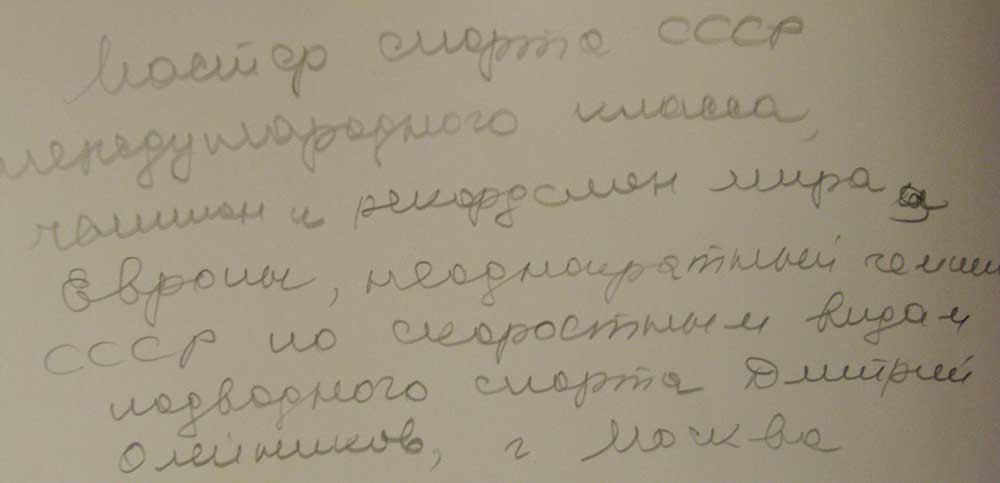 Мастер спорта СССР
международного класса,
чемпион и рекордсмен мира и
Европы, неоднократный чемпи
СССР по скоростным видам
подводного спорта Дмитрий
Олейников, г Москва